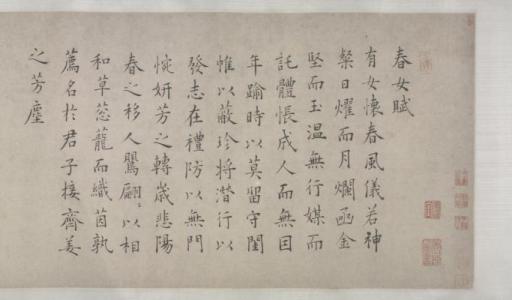 春女賦
有女懷春風儀若神
粲日燿而月爛函金
堅而玉温無行媒而
託體悵成人而無因
年踰時以莫留守閨
帷以蔽珍将潜行以
發志在禮防以無門
惋妍芳之轉歲悲陽
春之移人鸎翩〻以相
和草葱蘢而織茵孰
薦名於君子接齊姜
之芳塵